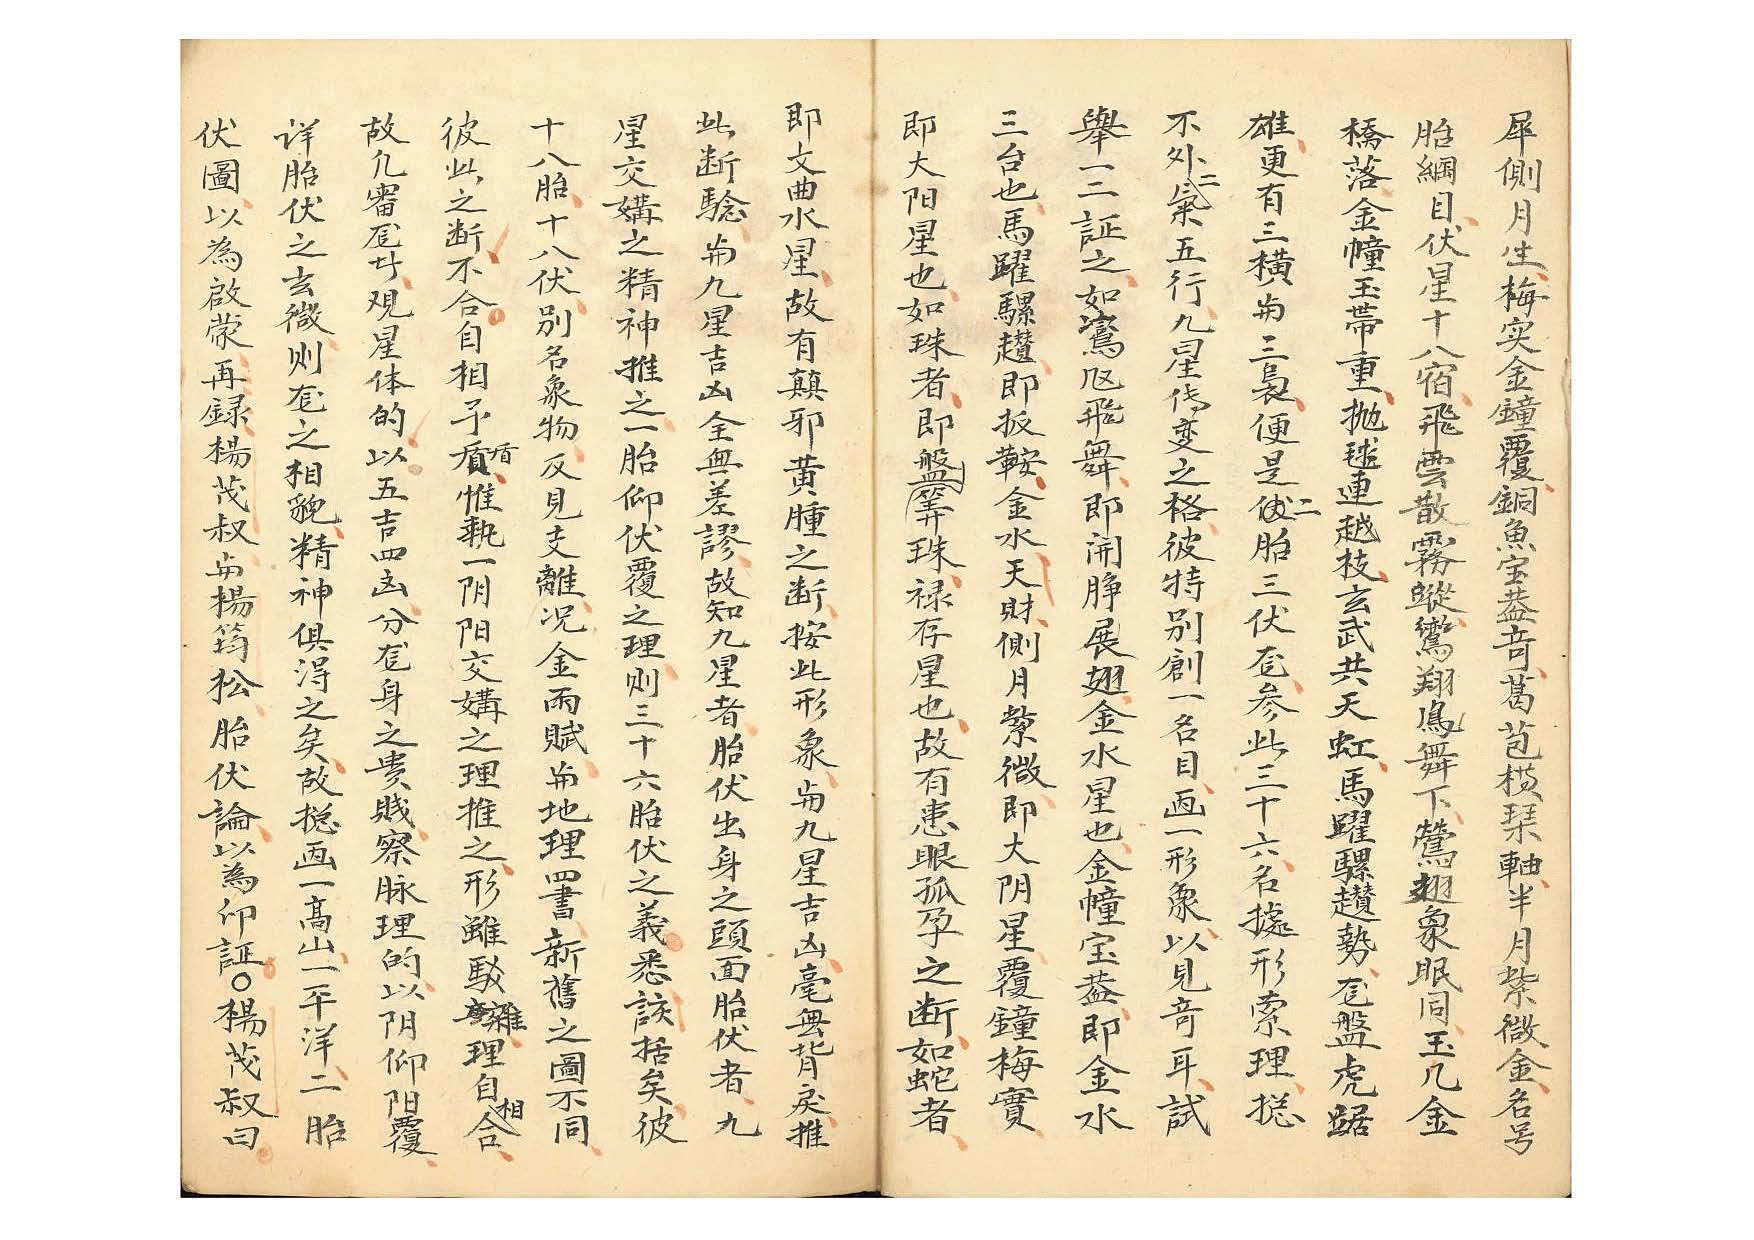 犀側月生、梅实金鐘覆、銅魚宝盖奇、葛苞横琹軸、半月紫微金、名号
胎綱目、伏星十八宿、飛雲散霧蹤、鸞翔鳯舞下、鶯翅象眠同、玉几金
橋落、金幢玉帶重、抛毬連越枝、玄武共天虹、馬躍騾趲勢、厐盤虎踞
雄、更有三横與三裊、便是伏二胎三伏厐、参此三十六名據形索理、揔
不外二氣五行、九星传变之格、彼特别創一名目、画一形象、以見奇耳、試
舉一二証之、如鸞凤飛舞、即開脖展翅、金水星也、金幢宝盖、即金水
三台也、馬躍騾趲、即扳鞍、金水天財、側月紫微、即大阴星、覆鐘梅實、
即大阳星也、如珠者、即盤筭珠、禄存星也、故有患眼孤孕之断、如蛇者、
即文曲水星、故有顛邪黄腫之断、按此形象、與九星吉凶毫無背戾、推
此断騐、與九星吉凶全無差謬、故知九星者、胎伏出身之頭面、胎伏者、九
星交媾之精神、推之一胎仰伏覆之理、则三十六胎伏之義悉該括矣、彼
十八胎、十八伏、别名象物、反見支離、况金雨賦與地理四書、新舊之圖不同、
彼此之断不合、自相予盾、惟執一阴阳交媾之理推之、形雖駁雜、理自相合、
故凡審厐廾、观星体的以五吉四凶、分厐身之贵贱、察脉理、的以阴仰阳覆、
详胎伏之玄微、则厐之相貌、精神俱淂之矣、故揔画一高山、一平洋、二胎
伏圖、以為啟蒙、再録楊茂叔與楊筠松胎伏論、以為印証。○楊茂叔曰